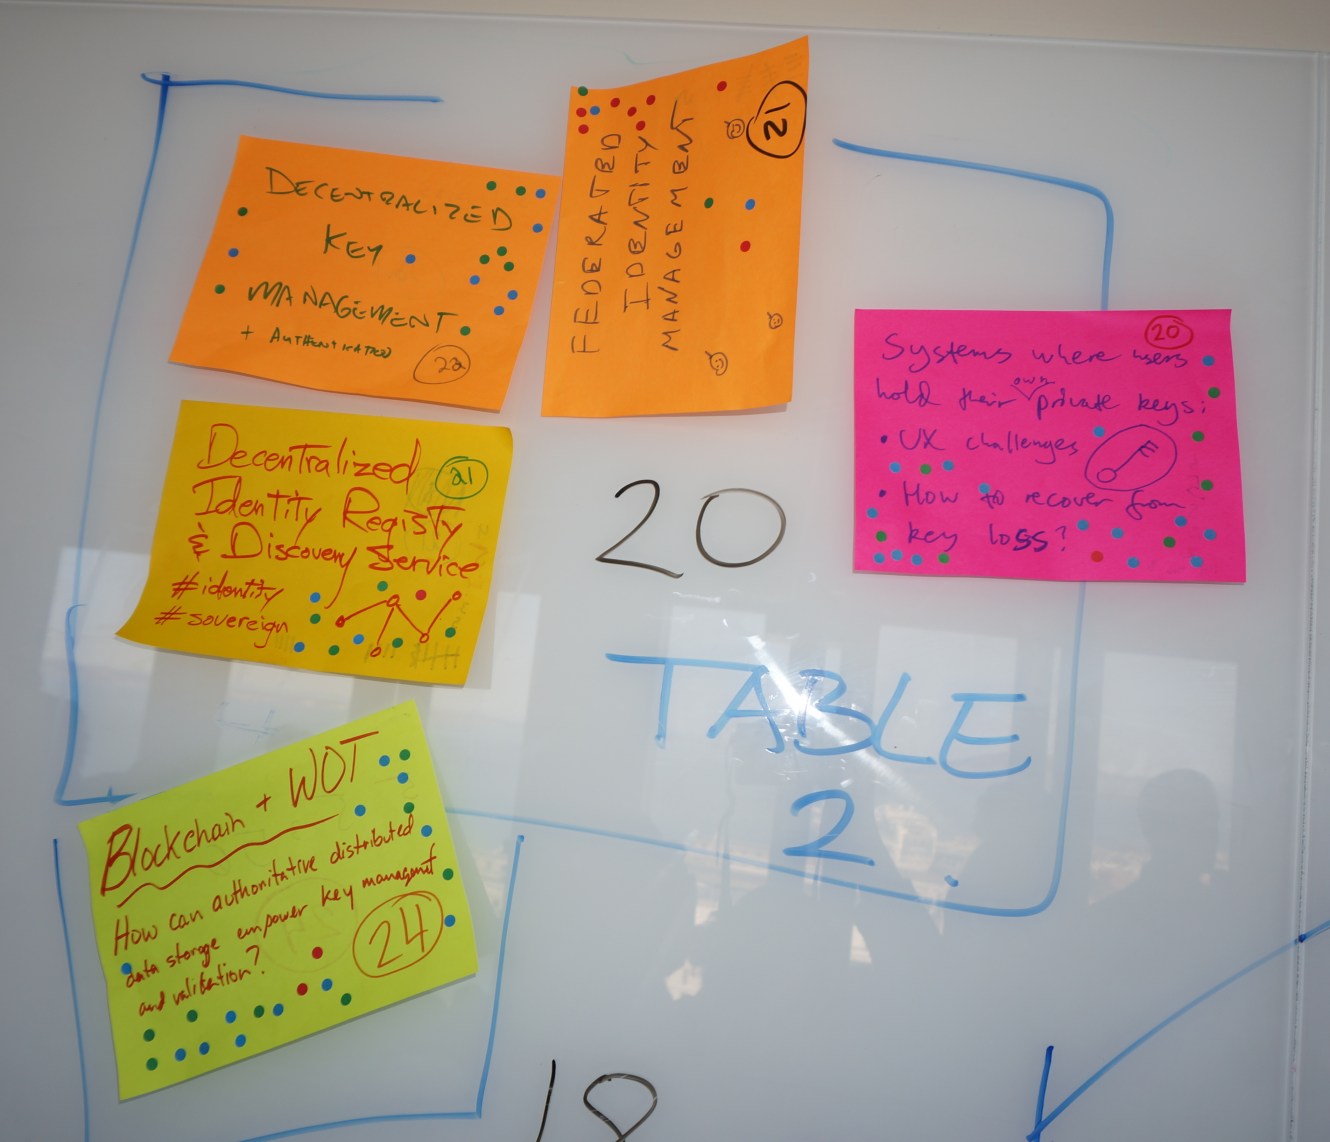 DECENTRALIZED
KEY
MANAGEMENT
+ AUTHENTICATED
FEDERATED
IDENTITY
MANAGEMENT
21
Systems where users
hold their own private keys:
• UX challenges
• How to recover from
key loss?
20
Decentralized
Identity Registy
& Discovery Service
#identity
#sovereign
21
20
TABLE
2
Blockchain + WOT
How can authoritative distributed
data storage empower key managemt
and validation?
24
18